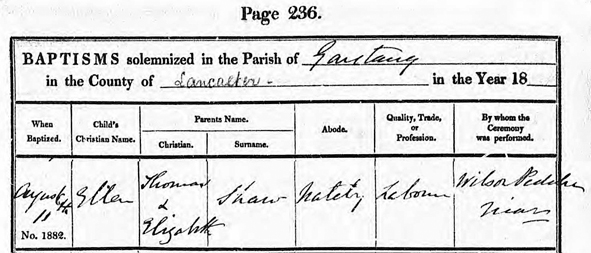 Page 236.
BAPTISMS solemnized in the Parish of Garstang
in the County of Lancaster - in the Year 18
When Baptized.
Child's Christian Name.
Parents Name.
Christian.
Surname.
Abode.
Quality, Trade, or Profession.
By whom the Ceremony was performed.
August 11th
No. 1882.
Ellen
Thomas
&
Elizabeth
Shaw
Nateby
Labourer
Wilson
Vicar